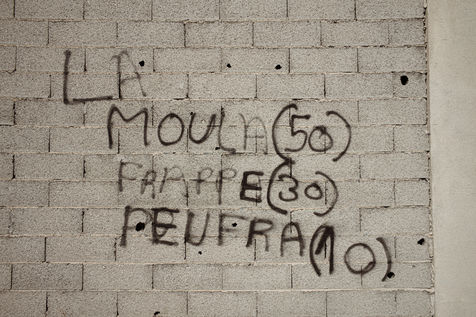 LA
MOULA (50)
FRAPPE (30)
PEUFRA (10)